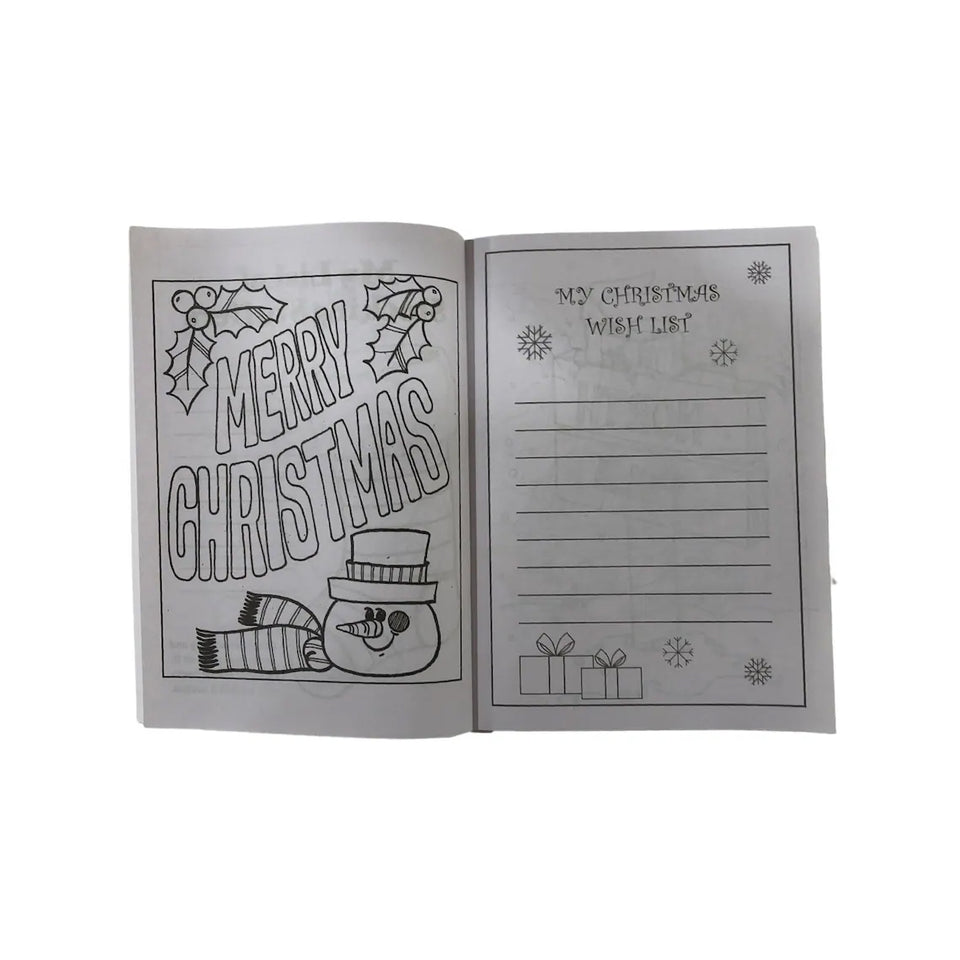 MERRY
CHRISTMAS
MY CHRISTMAS
WISH LIST